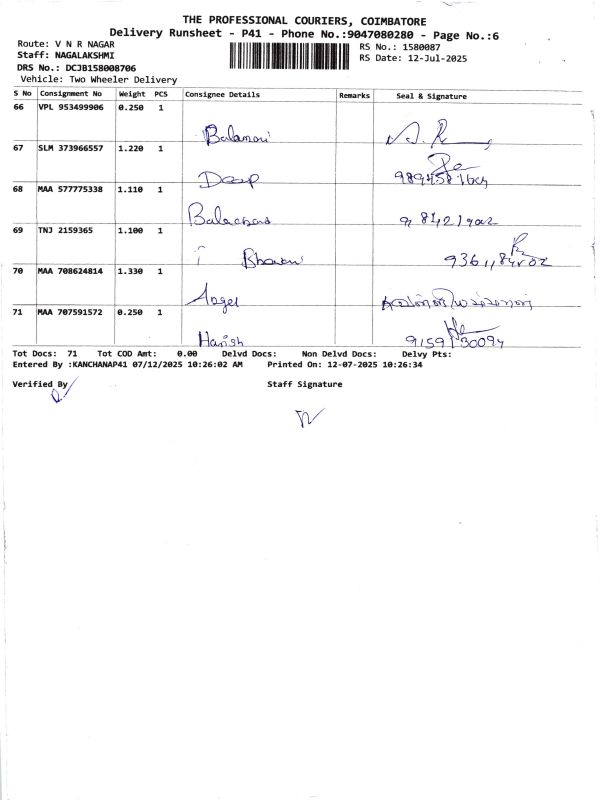 THE PROFESSIONAL COURIERS, COIMBATORE
Delivery Runsheet - P41 - Phone No.:9047080280 - Page No.:6
Route: V N R NAGAR
RS No.: 1580087
Staff: NAGALAKSHMI
RS Date: 12-Jul-2025
DRS No.: DCJB158008706
Vehicle: Two Wheeler Delivery
S No Consignment No Weight PCS Consignee Details Remarks Seal & Signature
66 VPL 953499906 0.250 1
67 SLM 373966557 1.220 1
Deep
68 MAA 577775338 1.110 1
69 TNJ 2159365 1.100 1
70 MAA 708624814 1.330 1
Angel
71 MAA 707591572 0.250 1
Harish
Tot Docs: 71 Tot COD Amt: 0.00 Delvd Docs: Non Delvd Docs: Delvy Pts:
Entered By :KANCHANAP41 07/12/2025 10:26:02 AM Printed On: 12-07-2025 10:26:34
Verified By Staff Signature